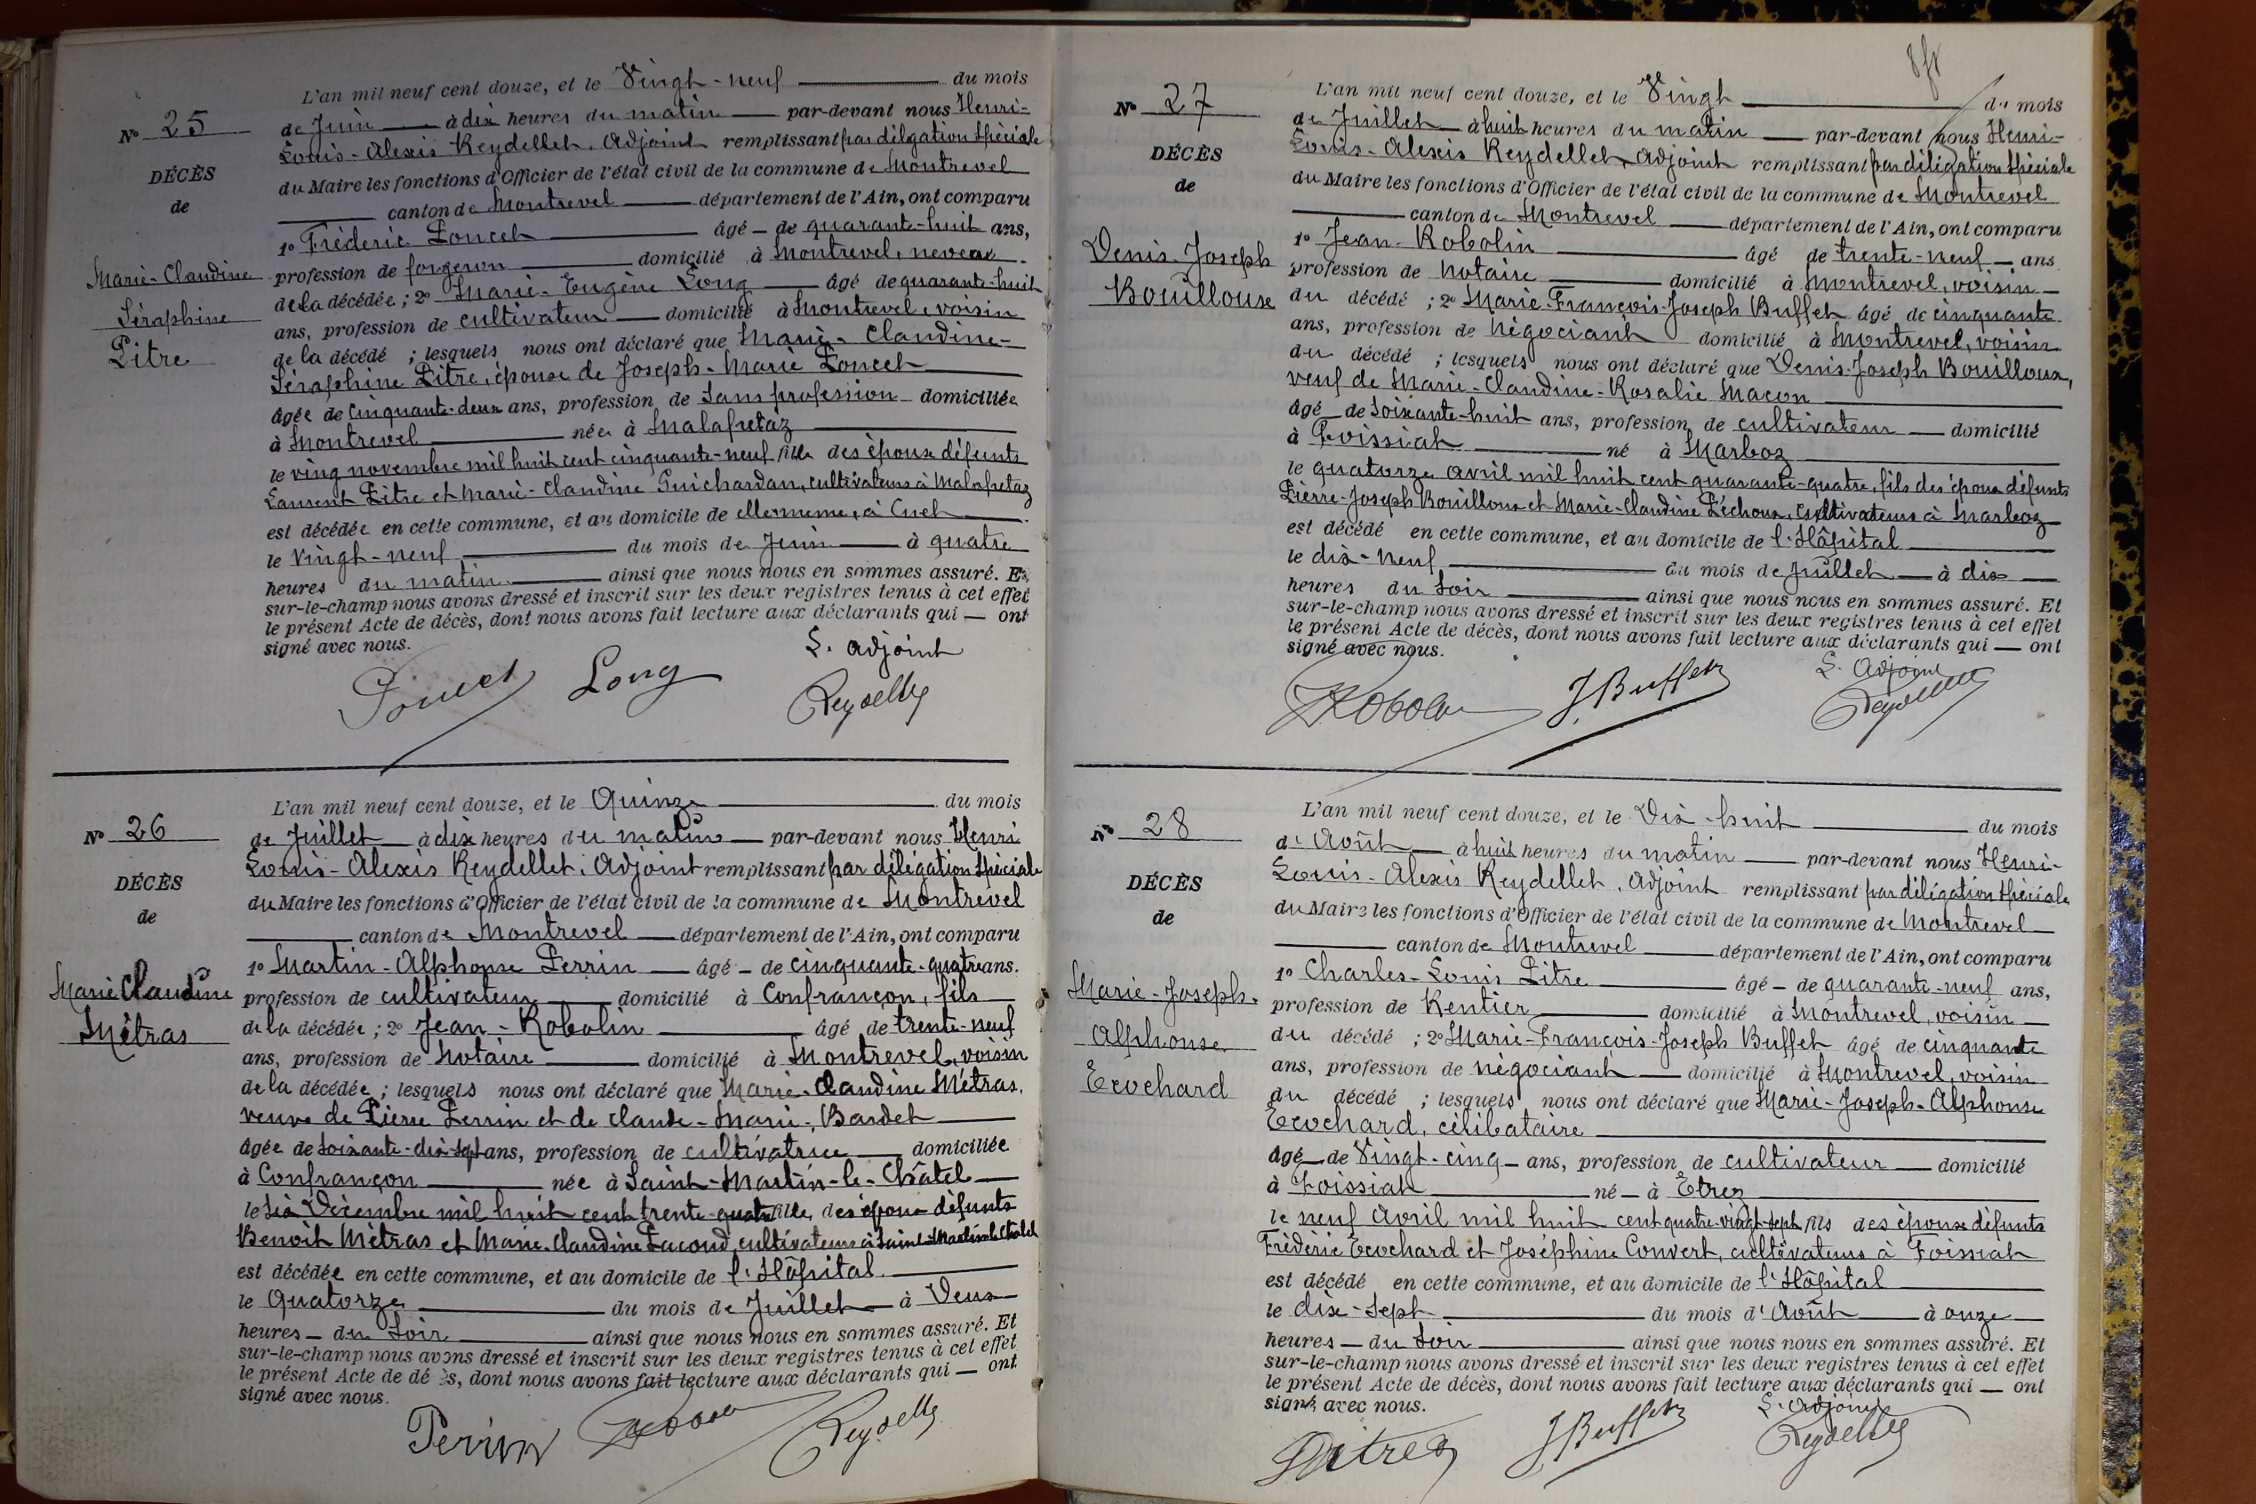 L'an mil neuf cent douze, et le Vingt-neuf du mois
N° 25
de Juin à dix heures du matin par-devant nous Henri-
Louis-Alexis Reydellet, Adjoint remplissant par délgation spéciale
DÉCÈS
du Maire les fonctions d'Officier de l'état civil de la commune de Montrevel
de
canton de Montrevel département de l'Ain, ont comparu
1° Fréderic Poncet âgé de quarante-huit ans,
Marie-Claudine
profession de forgeron domicilié à Montrevel, neveau
de la décédée ; 2° Marie-Eugène Long âgé de quarante-huit
Séraphine
ans, profession de cultivateur domicilié à Montrevel, voisin
Pitre
de la décédé ; lesquels nous ont déclaré que Marie-Claudine-
Séraphine Pitre, épouse de Joseph-Marie Poncet
âgée de cinquante-deux ans, profession de Sans profession domiciliée
à Montrevel née à Malafretaz
le ving novembre mil huit cent cinquante-neuf fille des époux défunts
Laurent Pitre et Marie-Claudine Guichardan, cultivateurs à Malafretaz
est décédée en cette commune, et au domicile de elle même, à Cuet
le vingt-neuf du mois de Juin à quatre
heures du matin ainsi que nous nous en sommes assuré. Et
sur-le-champ nous avons dressé et inscrit sur les deux registres tenus à cet effet
le présent Acte de décès, dont nous avons fait lecture aux déclarants qui ont
signé avec nous.
L. adjoint
Poncet Long Reydellet
L'an mil neuf cent douze, et le Quinze du mois
N° 26
de Juillet à dix heures du matin par-devant nous Henri
Louis-Alexis Reydellet, Adjoint remplissant par délégation spéciale
DÉCÈS
du Maire les fonctions d'Officier de l'état civil de la commune de Montrevel
de
canton de Montrevel département de l'Ain, ont comparu
1° Martin-Alphonse Perrin âgé de cinquante-quatre ans.
Marie Claudine
profession de cultivateur domicilié à Confrançon, fils
Métras
de la décédée ; 2° Jean-Robolin âgé de trente-neuf
ans, profession de Notaire domicilié à Montrevel, voisin
de la décédée ; lesquels nous ont déclaré que Marie-Claudine Métras,
veuve de Pierre Perrin et de Claude-Marie-Bardet
âgée de soixante-dix-sept ans, profession de cultivatrice domiciliée
à Confrançon née à Saint-Martin-le-Châtel
le six Décembre mil huit cent trente-quatre fille, des époux défunts
Benoit Métras et Marie-Claudine Lacoud, cultivateurs à Saint-Martin-le-Chatel
est décédée en cette commune, et au domicile de l'Hôpital
le Quatorze du mois de Juillet à Deux
heures du Soir ainsi que nous nous en sommes assuré. Et
sur-le-champ nous avons dressé et inscrit sur les deux registres tenus à cet effet
le présent Acte de décès, dont nous avons fait lecture aux déclarants qui ont
signé avec nous.
Perrin Robolin Reydellet
L'an mil neuf cent douze, et le Vingt du mois
N° 27
de Juillet à huit heures du matin par-devant nous Henri-
Louis-Alexis Reydellet, Adjoint remplissant par délégation spéciale
DÉCÈS
du Maire les fonctions d'Officier de l'état civil de la commune de Montrevel
de
canton de Montrevel département de l'Ain, ont comparu
1° Jean-Robolin âgé de trente-neuf ans
Denis-Joseph
profession de Notaire domicilié à Montrevel, voisin
Bouilloux
du décédé ; 2° Marie-François-Joseph Buffet âgé de cinquante
ans, profession de Négociant domicilié à Montrevel, voisin
du décédé ; lesquels nous ont déclaré que Denis-Joseph Bouilloux,
veuf de Marie-Claudine-Rosalie Macon
âgé de Soixante-huit ans, profession de cultivateur domicilié
à Foissiat né à Marboz
le quatorze avril mil huit cent quarante-quatre, fils des époux défunts
Pierre-Joseph Bouilloux et Marie-Claudine Péchoux, cultivateurs à Marboz
est décédé en cette commune, et au domicile de l'Hôpital
le dix-neuf du mois de Juillet à dix
heures du Soir ainsi que nous nous en sommes assuré. Et
sur-le-champ nous avons dressé et inscrit sur les deux registres tenus à cet effet
le présent Acte de décès, dont nous avons fait lecture aux déclarants qui ont
signé avec nous.
L. Adjoint
Robolin J. Buffet Reydellet
L'an mil neuf cent douze, et le Dix-huit du mois
N° 28
d' Août à huit heures du matin par-devant nous Henri-
Louis-Alexis Reydellet, Adjoint remplissant par délégation spéciale
DÉCÈS
du Maire les fonctions d'Officier de l'état civil de la commune de Montrevel
de
canton de Montrevel département de l'Ain, ont comparu
1° Charles-Louis Pitre âgé de quarante-neuf ans,
Marie-Joseph-
profession de Rentier domicilié à Montrevel, voisin
Alphonse
du décédé ; 2° Marie-François-Joseph Buffet âgé de cinquante
ans, profession de négociant domicilié à Montrevel, voisin
Ecochard
du décédé ; lesquels nous ont déclaré que Marie-Joseph-Alphonse
Ecochard, célibataire
âgé de Vingt-cinq ans, profession de cultivateur domicilié
à Foissiat né à Etrez
le neuf Avril mil huit cent quatre-vingt-sept fils des époux défunts
Fréderic Ecochard et Joséphine Convert, cultivateurs à Foissiat
est décédé en cette commune, et au domicile de l'Hôpital
le dix-sept du mois d'Août à onze
heures du Soir ainsi que nous nous en sommes assuré. Et
sur-le-champ nous avons dressé et inscrit sur les deux registres tenus à cet effet
le présent Acte de décès, dont nous avons fait lecture aux déclarants qui ont
signé avec nous.
L. adjoint
Pitre J. Buffet Reydellet